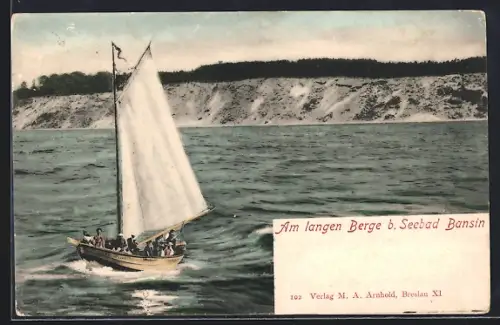 Am langen Berge b. Seebad Bansin
192 Verlag M. A. Arnhold, Breslau XI